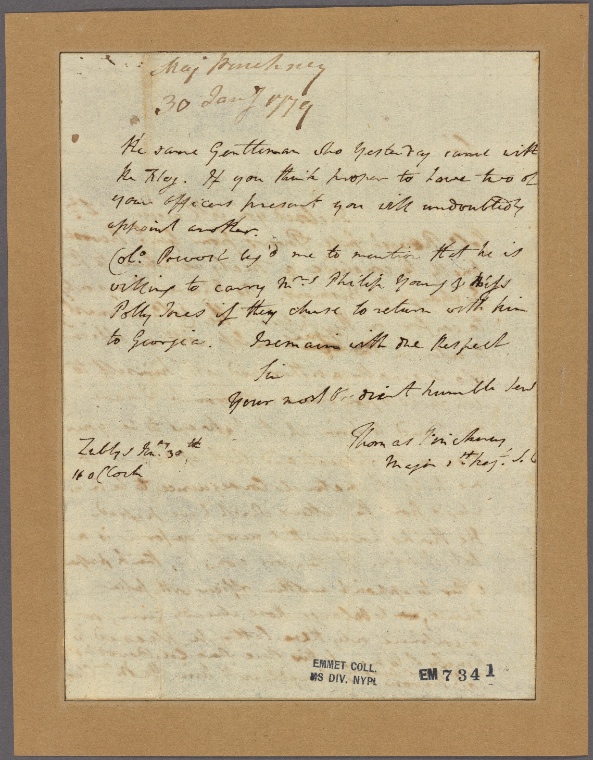 Maj Pinckney
30 Jany 1779
the same Gentleman who Yesterday came with
the Flag. If you think proper to have two of
your officers present you will undoubtedly
appoint another.
Colo. Prevost me to mention that he is
willing to carry Mrs Philip Young & Miss
Polly Jones if they chuse to return with him
to Georgia. I remain with due Respect
Sir
Your most humble Serv
Thomas Pinckney
Major 1st Regt. S. C
30th
oClock
EMMET COLL.
MS DIV. NYPL
EM 7341